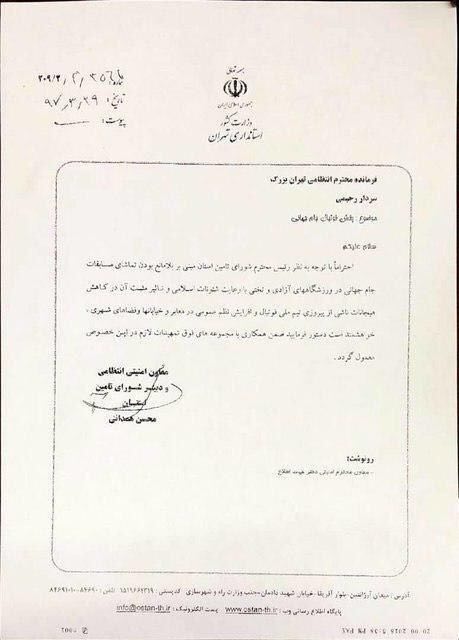 بسمه تعالی
جمهوری اسلامی ایران
وزارت کشور
استانداری تهران
شماره:
تاریخ: ۹۷،۳،۲۹
پیوست:
فرمانده محترم انتظامی تهران بزرگ
سردار رحیمی
موضوع: پخش فوتبال جام جهانی
سلام علیکم
احتراماً با توجه به نظر رئیس محترم شورای تامین استان مبنی بر بلامانع بودن تماشای مسابقات
جام جهانی در ورزشگاههای آزادی و تختی با رعایت شئونات اسلامی و تاثیر مثبت آن در کاهش
هیجانات ناشی از پیروزی تیم ملی فوتبال و افزایش نظم عمومی در معابر و خیابانها وفضاهای شهری ،
خواهشمند است دستور فرمایید ضمن همکاری با مجموعه های فوق تمهیدات لازم در این خصوص
معمول گردد .
معاون امنیتی انتظامی
و دبیر شورای تامین
استان
محسن همدانی
رونوشت:
آدرس : میدان آرژانتین- بلوار آفریقا- خیابان شهید دادمان-جنب وزارت راه و شهرسازی کدپستی : ۱۵۱۹۶۶۲۳۱۹ تلفن : ۸۴۶۹۰-۸۴۶۹۱۰۱۰
پایگاه اطلاع رسانی وب : www.ostan-th.ir پست الکترونیک : info@ostan-th.ir